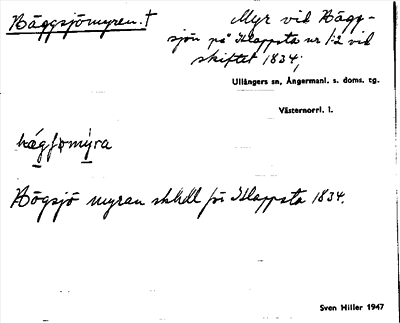 Bäggsjömyren. †
Myr vid Bägg-
sjön på Klappsta nr 1:2 vid
skiftet 1834;
Ullångers sn, Ångermanl. s. doms. tg.
Västernorrl. l.
Högsjö myran skhdl för Klappsta 1834.
Sven Hiller 1947